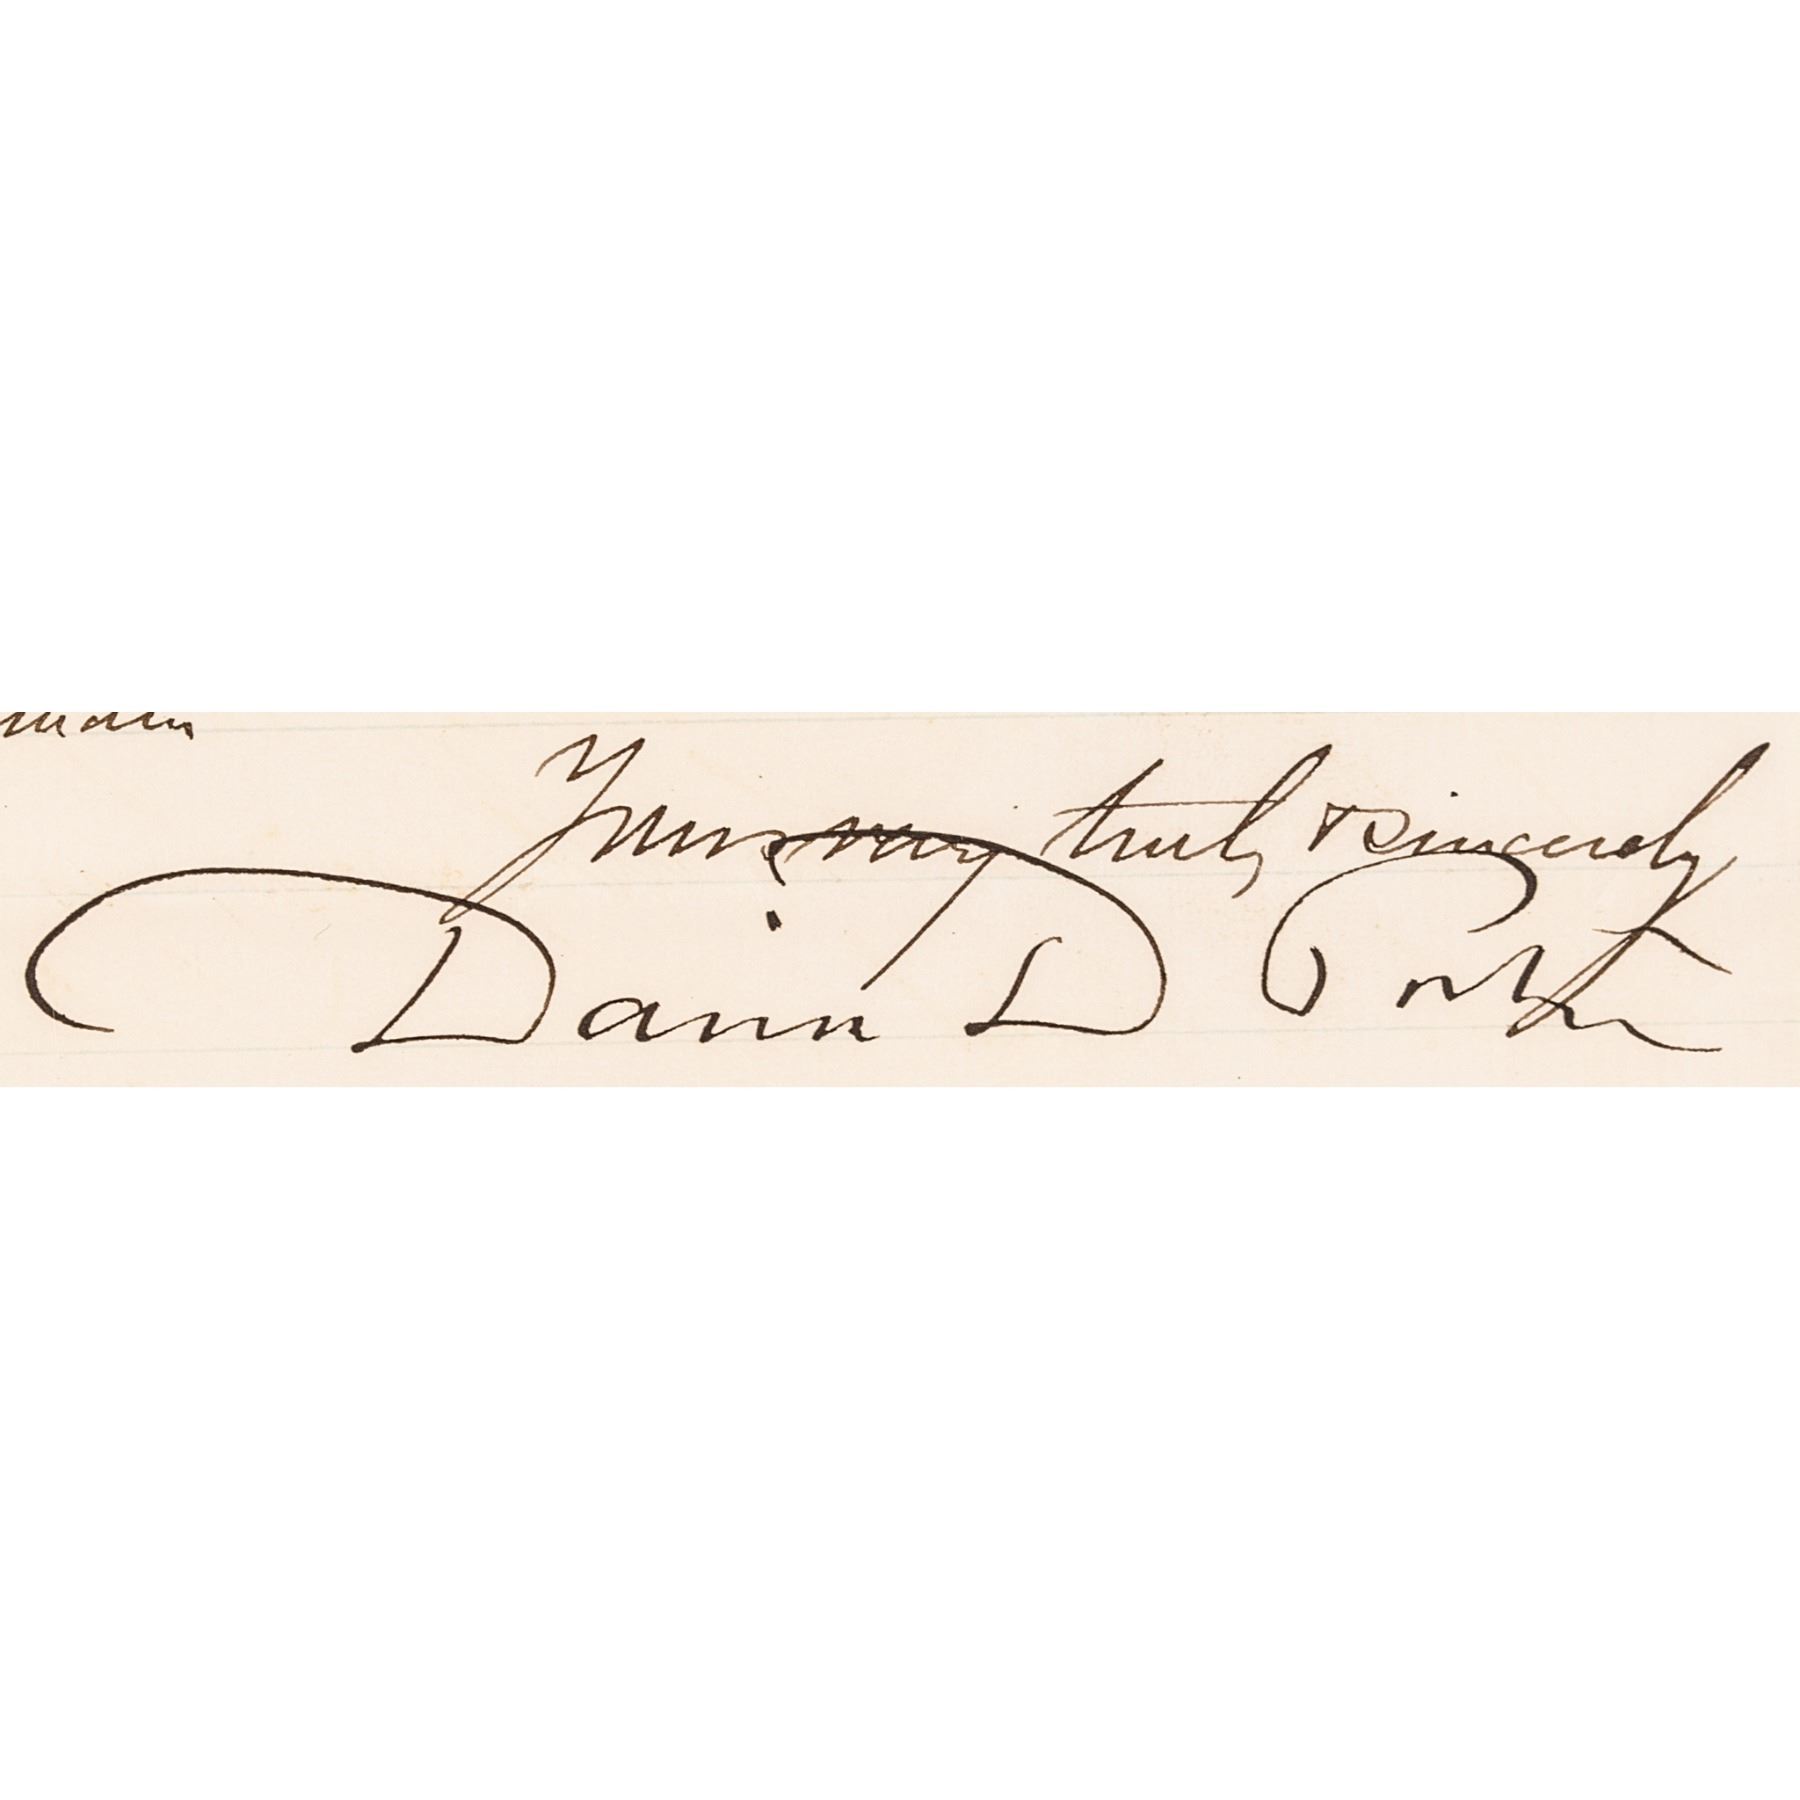 Yours very truly & sincerely
David D Porter